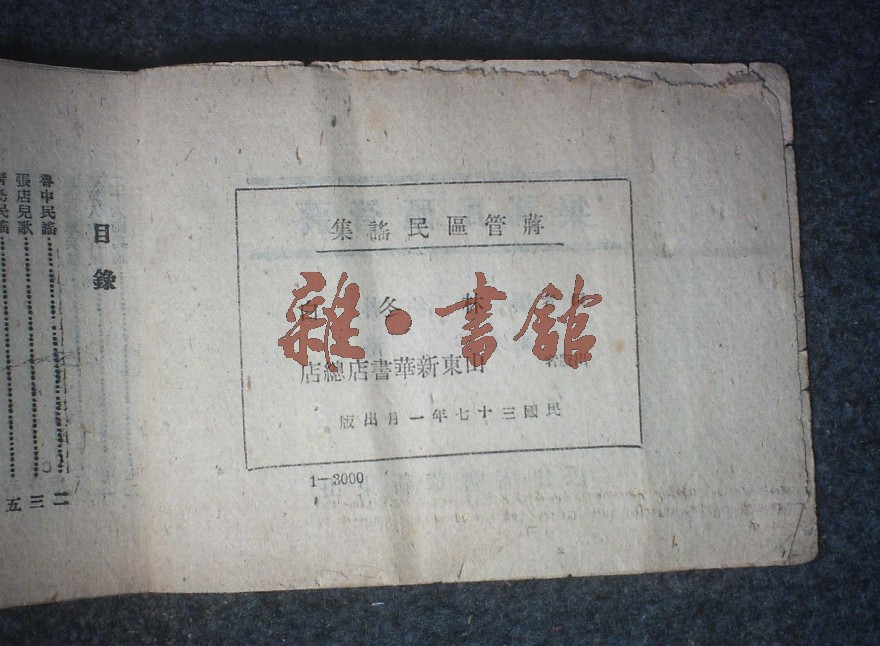 蔣管區民謠集
林冬白
山東新華書店總店
民國三十七年一月出版
1—3000
雜·書館
目錄
魯中民謠 二
張店兒歌 三
民謠 五